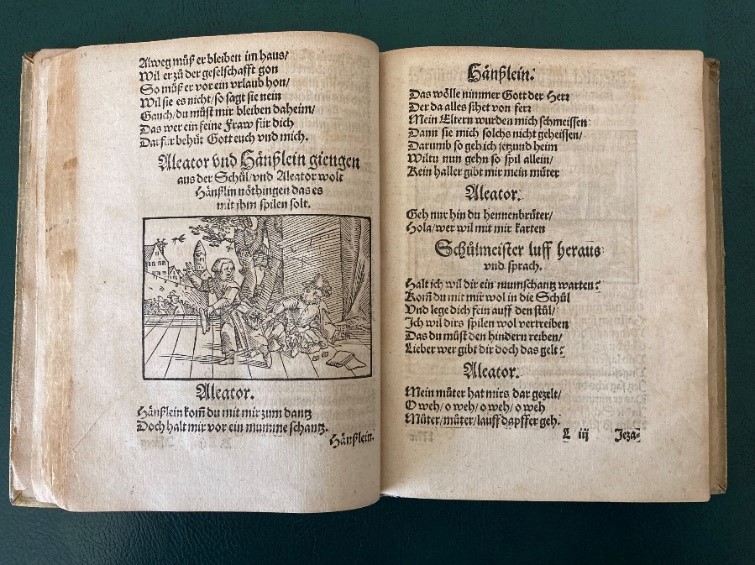 Alweg müß er bleiben im haus/
Wil er zü der geselschafft gon
So müß er vor ein vrlaub hon/
Wil sie es nicht/ so sagt sie nein
Gauch/ du müst mir bleiben daheim/
Das wer ein feine Fraw für dich
Darfür behüt Gott euch vnd mich.
Aleator vnd Hänßlein giengen
aus der Schül/ vnd Aleator wolt
Hänßlin nöthingen das es
mit jhm spilen solt.
Aleator.
Hänßlein kom̃ du mit mir zum dantz
Doch halt mir vor ein mumme schantz.
Hänßlein.
Hänßlein.
Das wölle nimmer Gott der Herr
Der da alles sihet von ferr
Mein Eltern wurden mich schmeissen
Dann sie mich solchs nicht geheissen/
Darumb so geh ich jetzund heim
Wiltu nun gehn so spil allein/
Kein haller gibt mir mein müter
Aleator.
Geh nur hin du hennenbrüter/
Hola/ wer wil mit mir karten
Schülmeister luff heraus
vnd sprach.
Halt ich wil dir ein mumschantz warten:
Kom̃ du mit mir wol in die Schül
Vnd lege dich fein auff den stül/
Ich wil dirs spilen wol vertreiben
Das du müst den hindern reiben/
Lieber wer gibt dir doch das gelt:
Aleator.
Mein müter hat mirs dar gezelt/
O weh/ o weh/ o weh/ o weh
Müter/ müter/ lauff dapffer geh.
L iij Jeza-